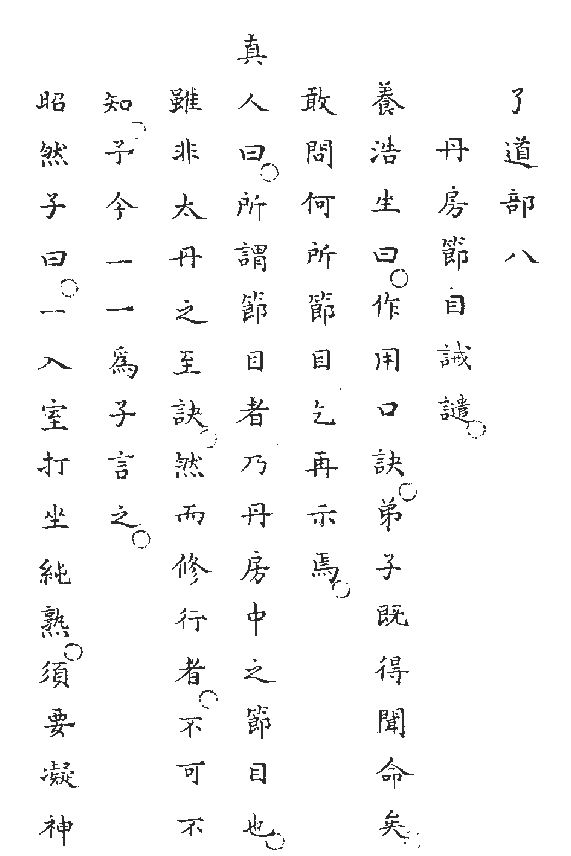 了道部八
丹房節目誡譴。
養浩坐曰。作用口訣。弟子既得聞命矣。
敢問何所節目乞再示焉。
真人曰。所謂節目者乃丹房中之節目也。
雖非太丹之至訣。然而修行者。不可不
知。予今一一為子言之。
昭然子曰。一入室打坐純熟。須要凝神